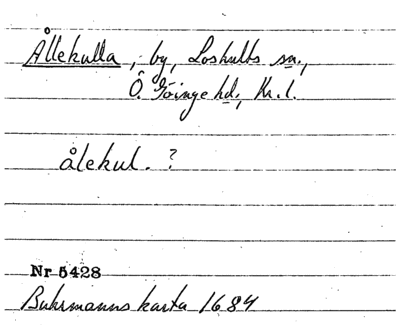 Ållekulla, by, Loshults sn.,
Ö. Göinge hd, Kr. l.
ålekul. ?
Nr 5428
Buhrmanns karta 1684